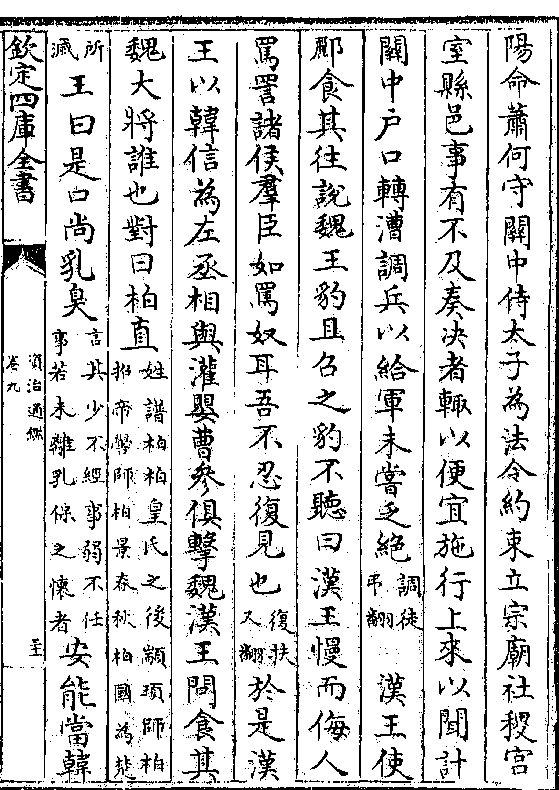 陽命蕭何守關中侍太子為法令約束立宗廟社稷宫
室縣邑事有不及奏决者輙以便宜施行上來以聞計
關中户口轉漕調兵以給軍未嘗乏絶調徒弔翻漢王使
酈食其往説魏王豹且召之豹不聽曰漢王慢而侮人
罵詈諸侯羣臣如罵奴耳吾不忍復見也復扶又翻於是漢
王以韓信為左丞相與灌嬰曹參俱擊魏漢王問食其
魏大將誰也對曰柏直姓譜柏柏皇氏之後顓頊師柏招帝嚳師柏景春秋柏國為楚
所滅王曰是口尚乳臭言其少不經事弱不任事若未離乳保之懷者安能當韓
欽定四庫全書
資治通鑑
卷九